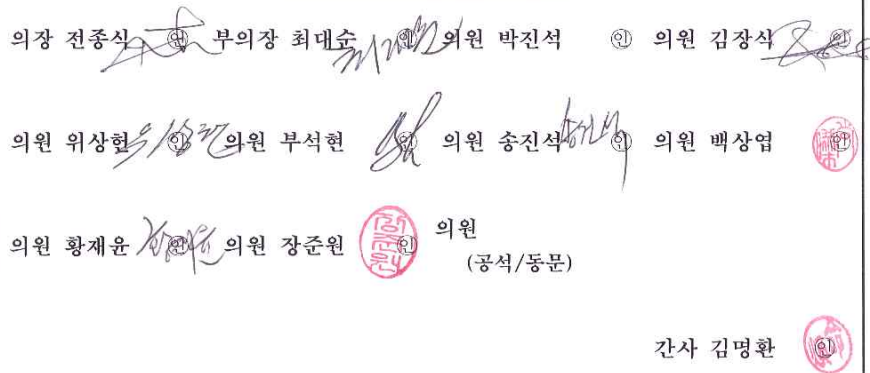 의장 전종식 ㊞ 부의장 최대순 ㊞ 의원 박진석 ㊞ 의원 김장식 ㊞
의원 위상현 ㊞ 의원 부석현 ㊞ 의원 송진석 ㊞ 의원 백상엽 ㊞
의원 황재윤 ㊞ 의원 장준원 ㊞ 의원
(공석/동문)
간사 김명환 ㊞